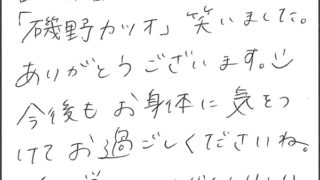 「磯野カツオ」笑いました。
ありがとうございます。
今後もお身体に気をつ
けてお過ごしくださいね。